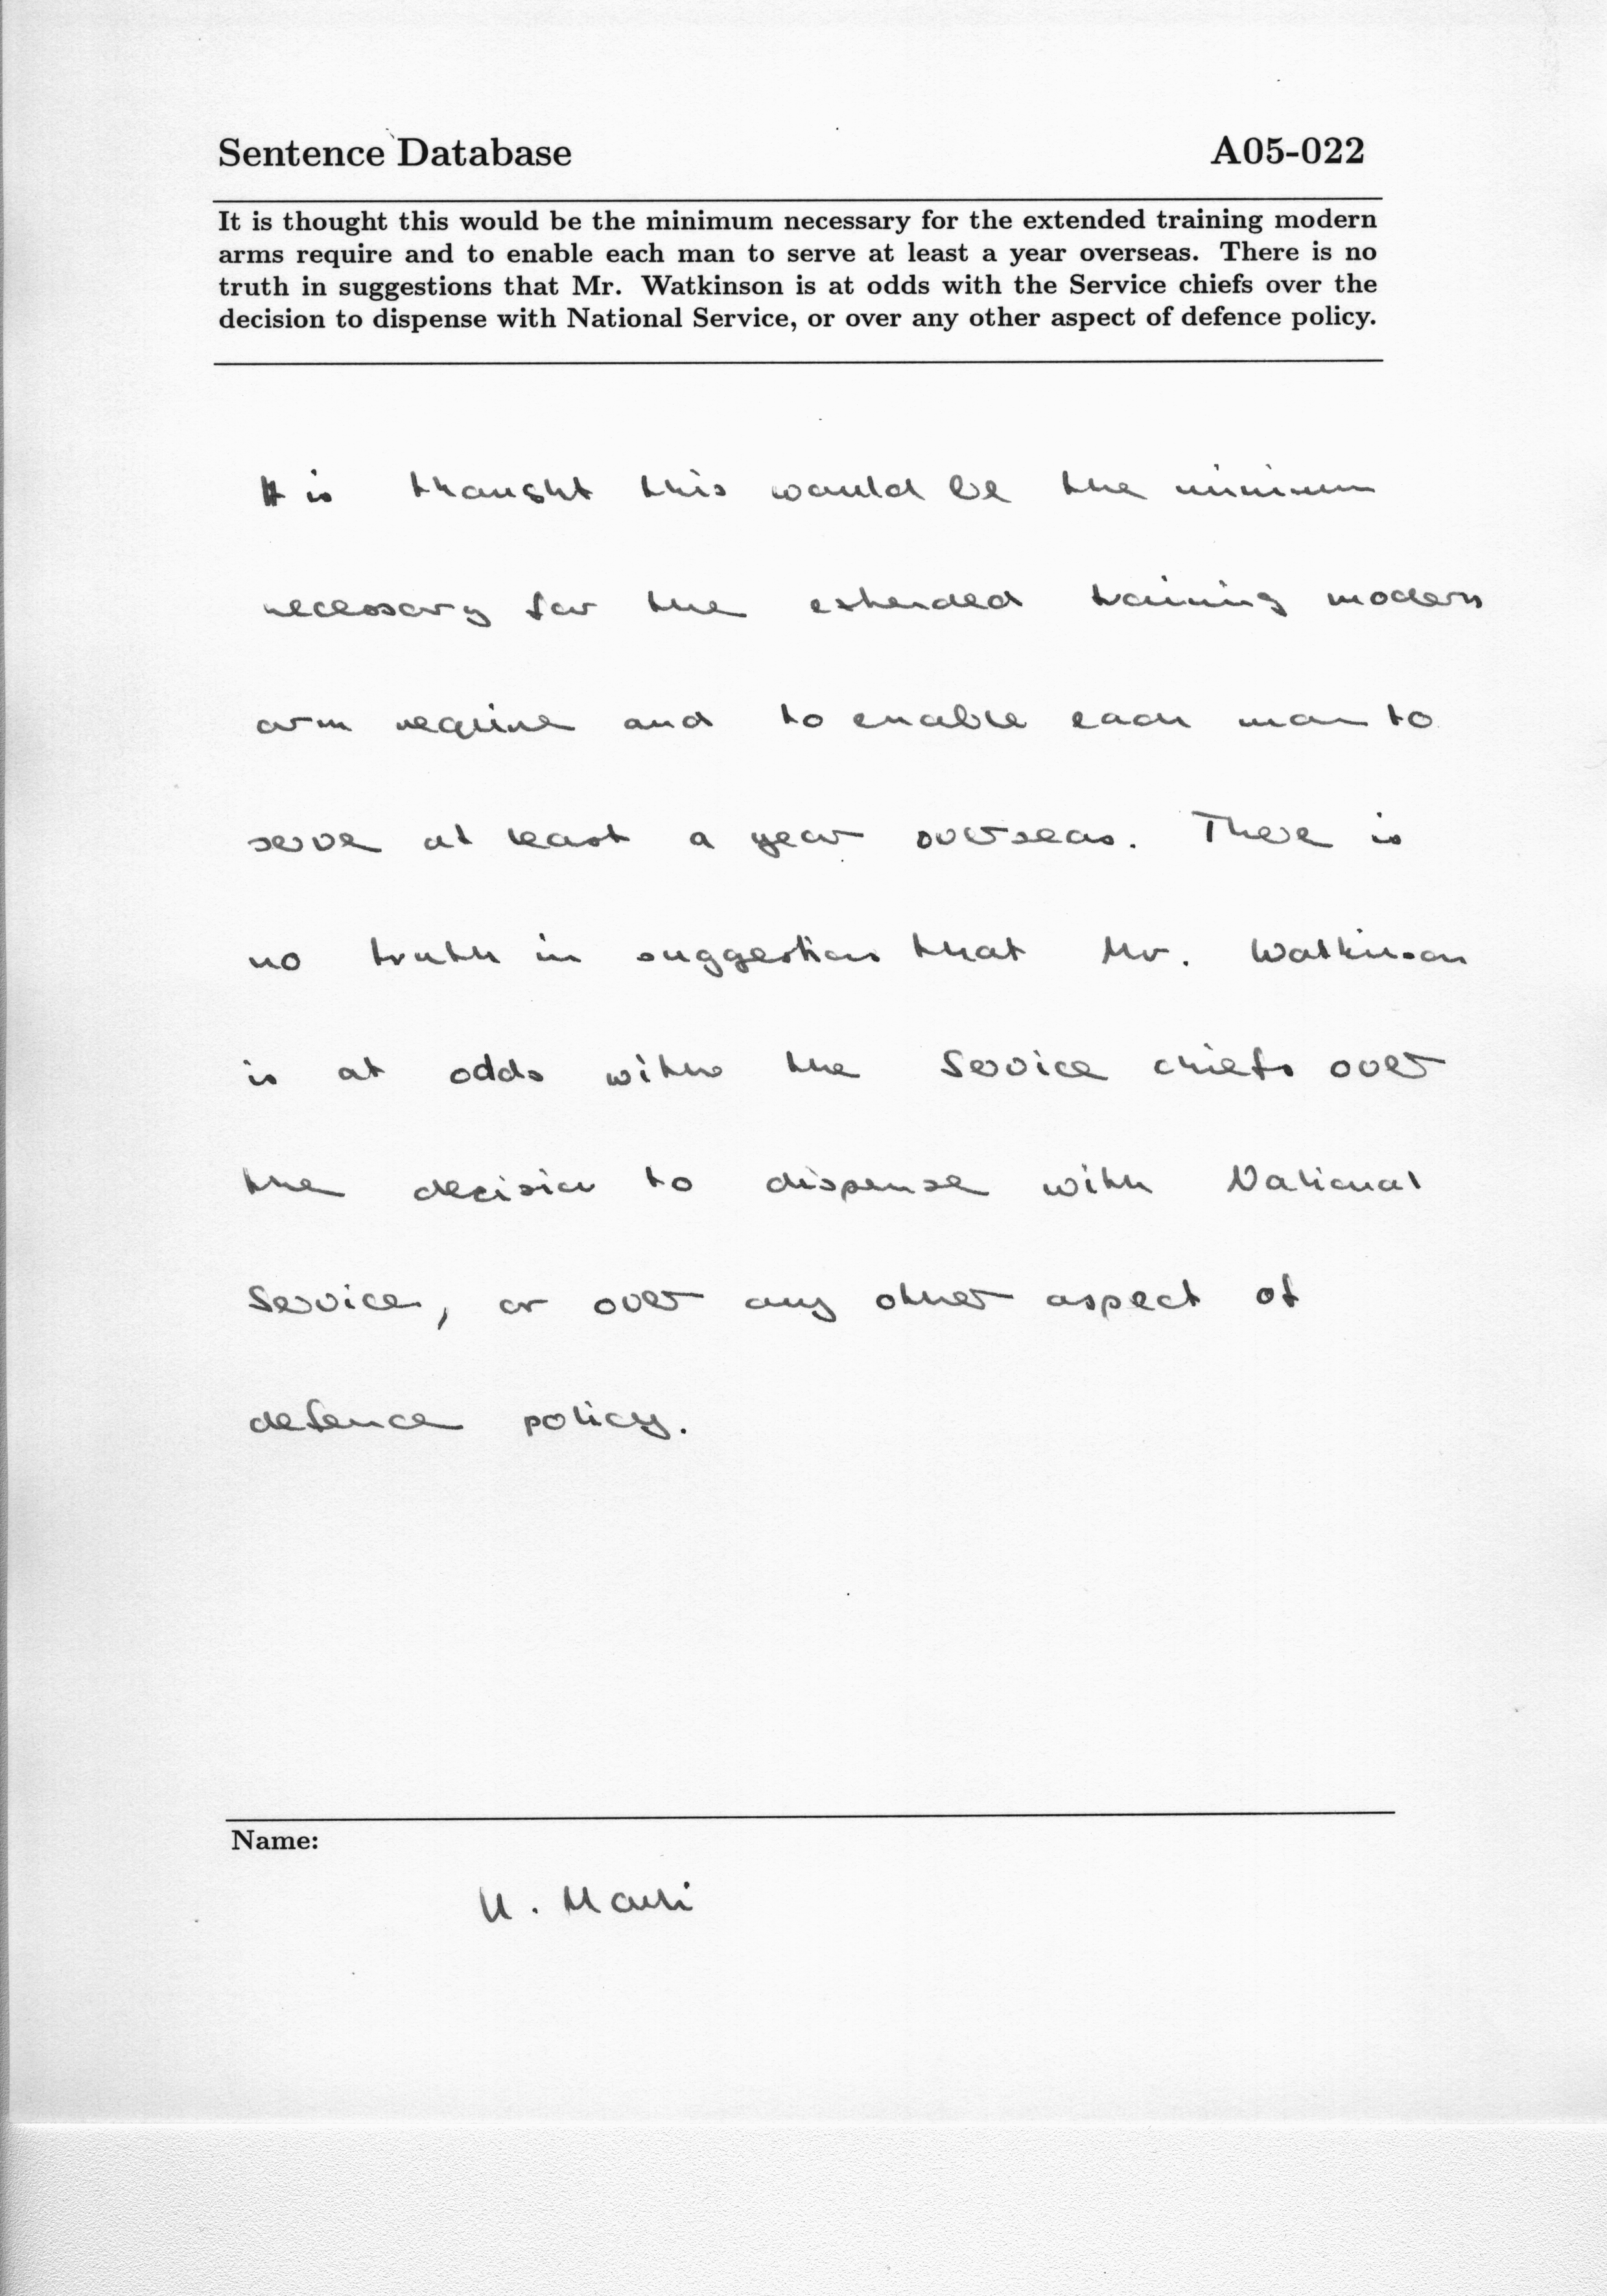 Sentence Database A05-022
It is thought this would be the minimum necessary for the extended training modern
arms require and to enable each man to serve at least a year overseas. There is no
truth in suggestions that Mr. Watkinson is at odds with the Service chiefs over the
decision to dispense with National Service, or over any other aspect of defence policy.
It is thought this would be the minimum
necessary for the extended training modern
arm require and to enable each man to
serve at least a year overseas. There is
no truth in suggestions that Mr. Watkinson
is at odds with the Service chiefs over
the decision to dispense with National
Service, or over any other aspect of
defence policy.
Name: